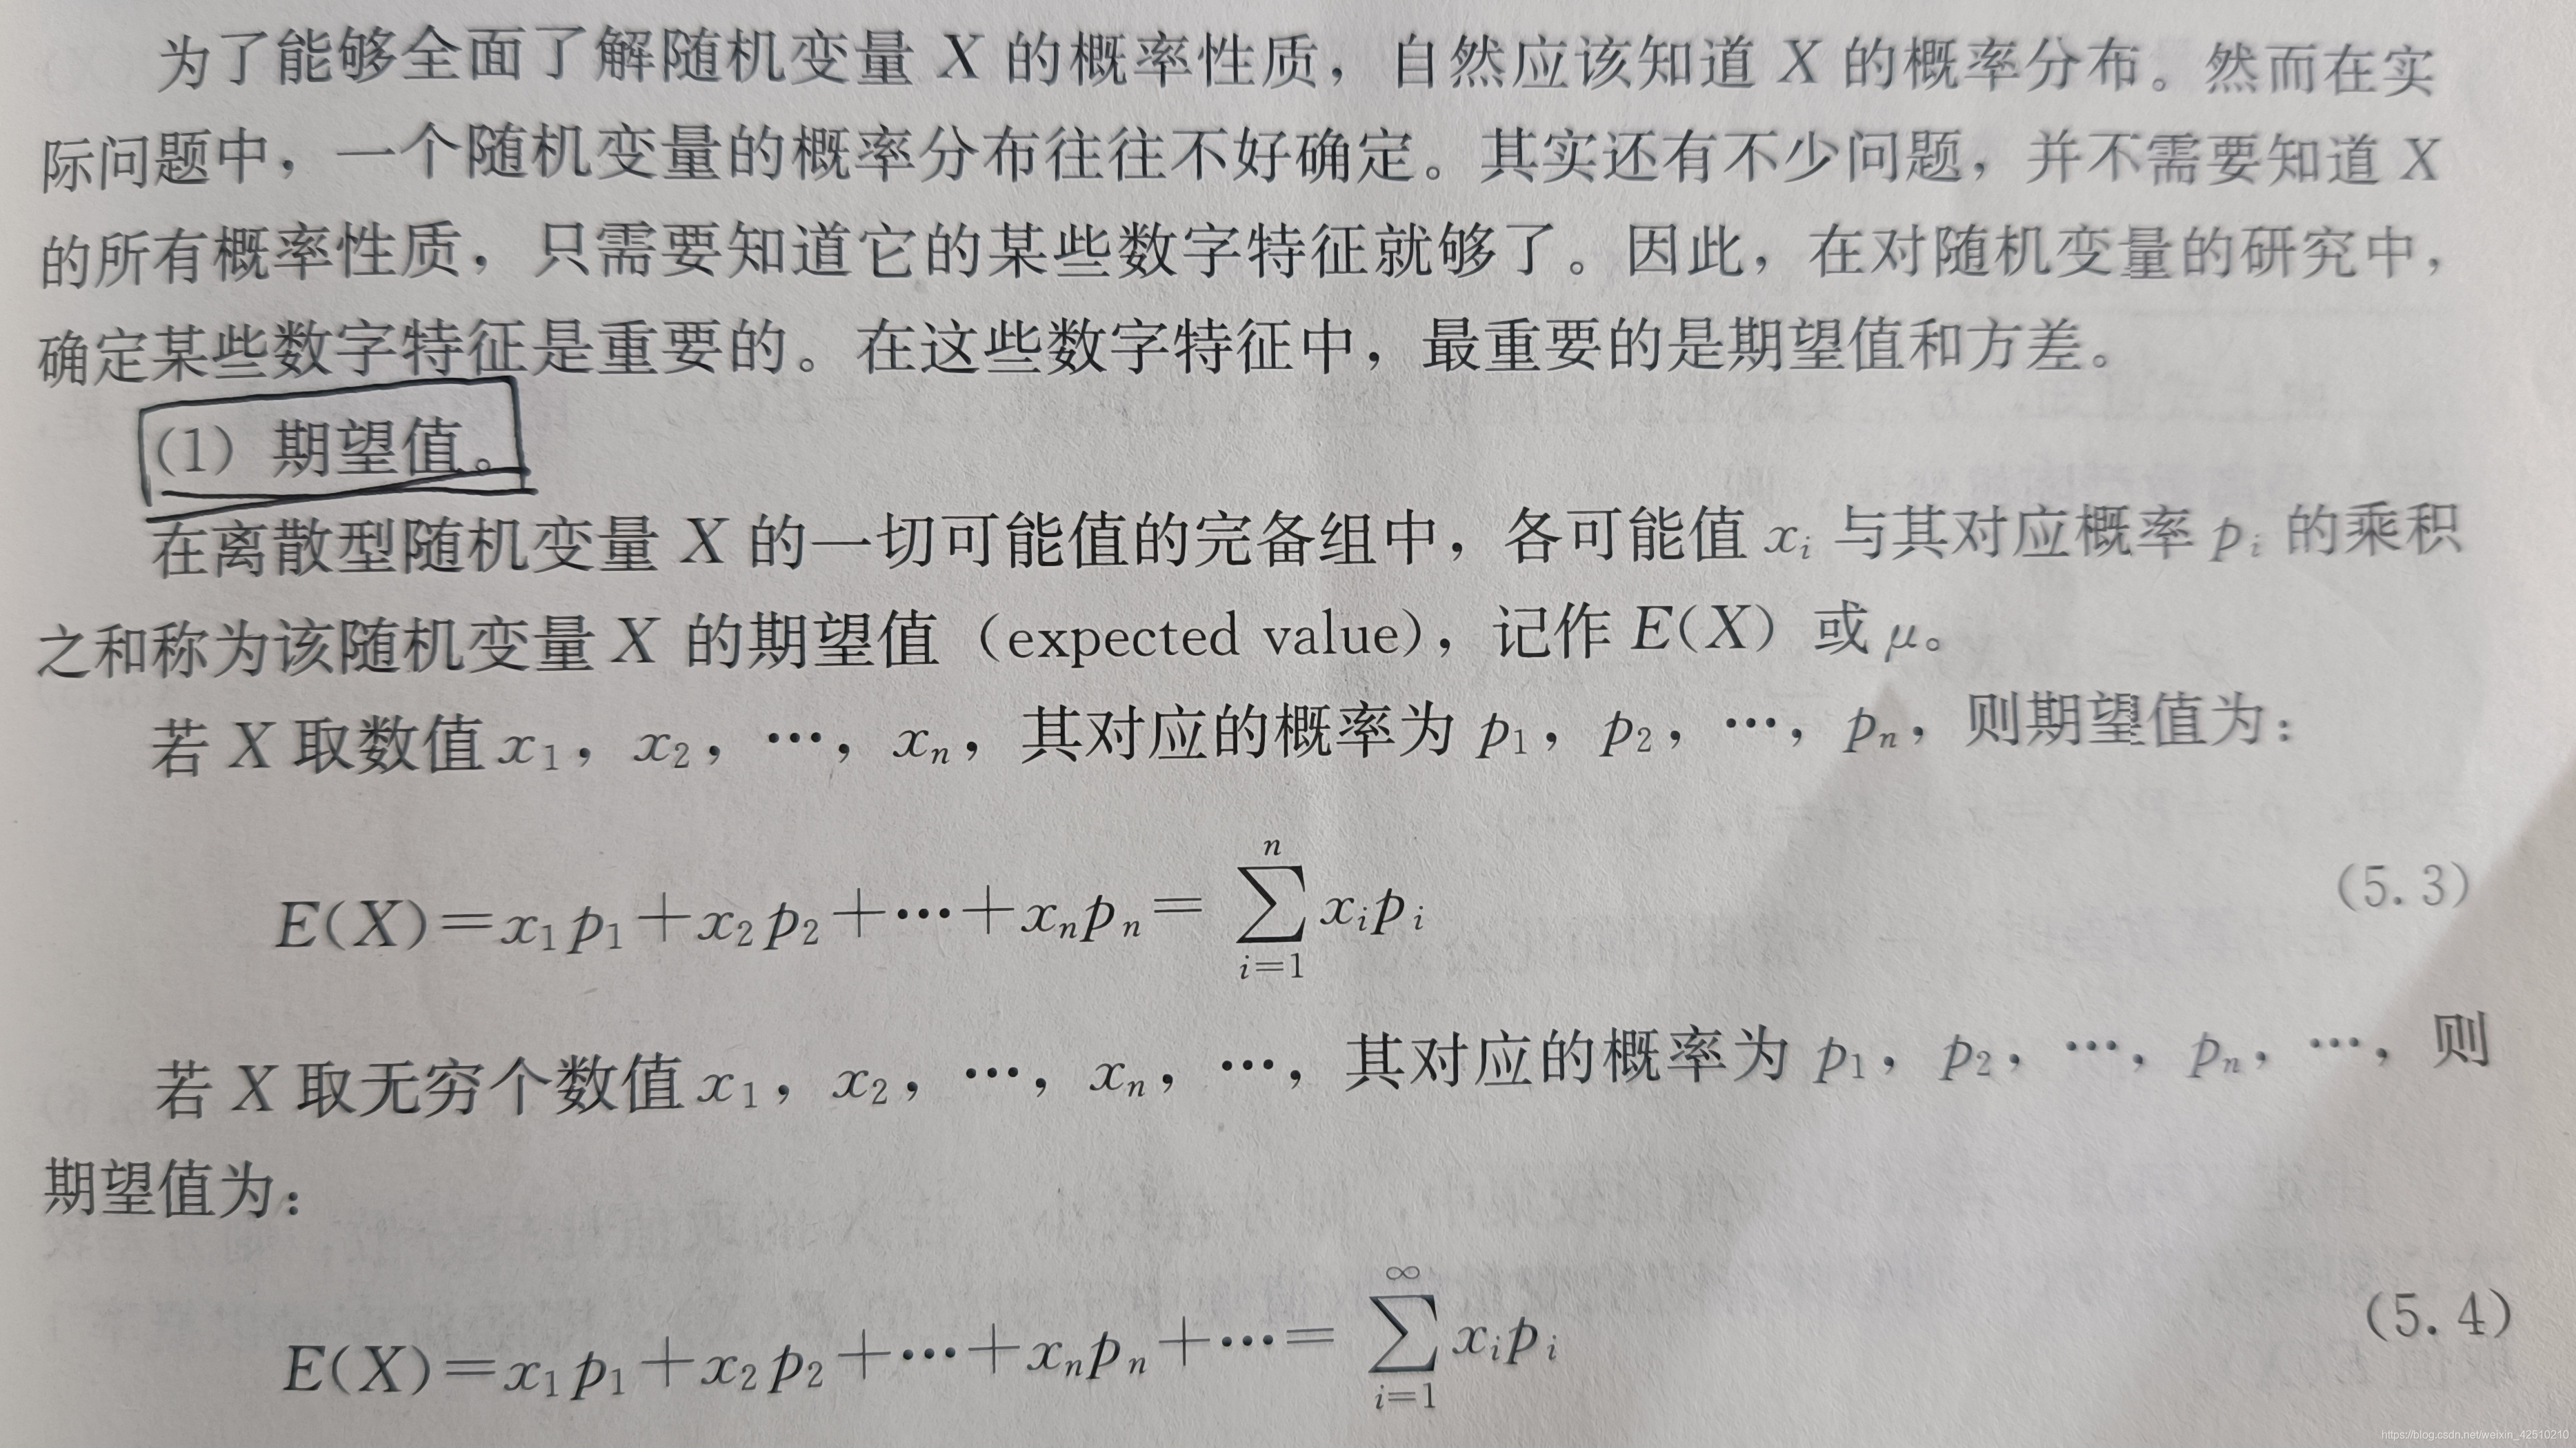 为了能够全面了解随机变量 X 的概率性质，自然应该知道 X 的概率分布。然而在实
际问题中，一个随机变量的概率分布往往不好确定。其实还有不少问题，并不需要知道 X
的所有概率性质，只需要知道它的某些数字特征就够了。因此，在对随机变量的研究中，
确定某些数字特征是重要的。在这些数字特征中，最重要的是期望值和方差。
(1) 期望值。
在离散型随机变量 X 的一切可能值的完备组中，各可能值 xᵢ 与其对应概率 pᵢ 的乘积
之和称为该随机变量 X 的期望值（expected value），记作 E(X) 或 μ。
若 X 取数值 x₁，x₂，…，xₙ，其对应的概率为 p₁，p₂，…，pₙ，则期望值为：
E(X)=x₁p₁+x₂p₂+…+xₙpₙ= ∑ᵢ₌₁ⁿ xᵢpᵢ (5.3)
若 X 取无穷个数值 x₁，x₂，…，xₙ，…，其对应的概率为 p₁，p₂，…，pₙ，…，则
期望值为：
E(X)=x₁p₁+x₂p₂+…+xₙpₙ+…= ∑_{i=1}^{∞} xᵢpᵢ (5.4)
https://blog.csdn.net/weixin_42510210